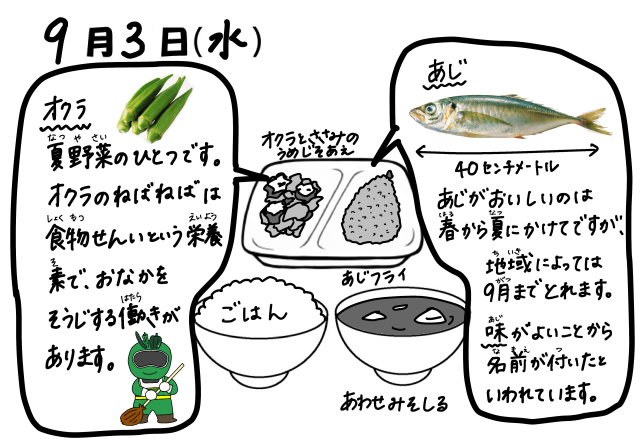 9月3日(水)
オクラ
夏野菜のひとつです。
オクラのねばねばは
食物せんいという栄養
素で、おなかを
そうじする働きが
あります。
オクラとささみの
うめじそあえ
あじフライ
ごはん
あわせみそしる
あじ
40センチメートル
あじがおいしいのは
春から夏にかけてですが、
地域によっては
9月までとれます。
味がよいことから
名前が付いたと
いわれています。